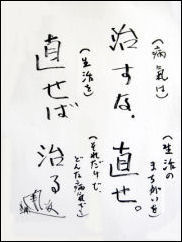 (病氣は)
治すな、
(生活の
まちがいを)
直せ。
(生活を)
直せば
(それだけで、
どんな病氣でも)
治る